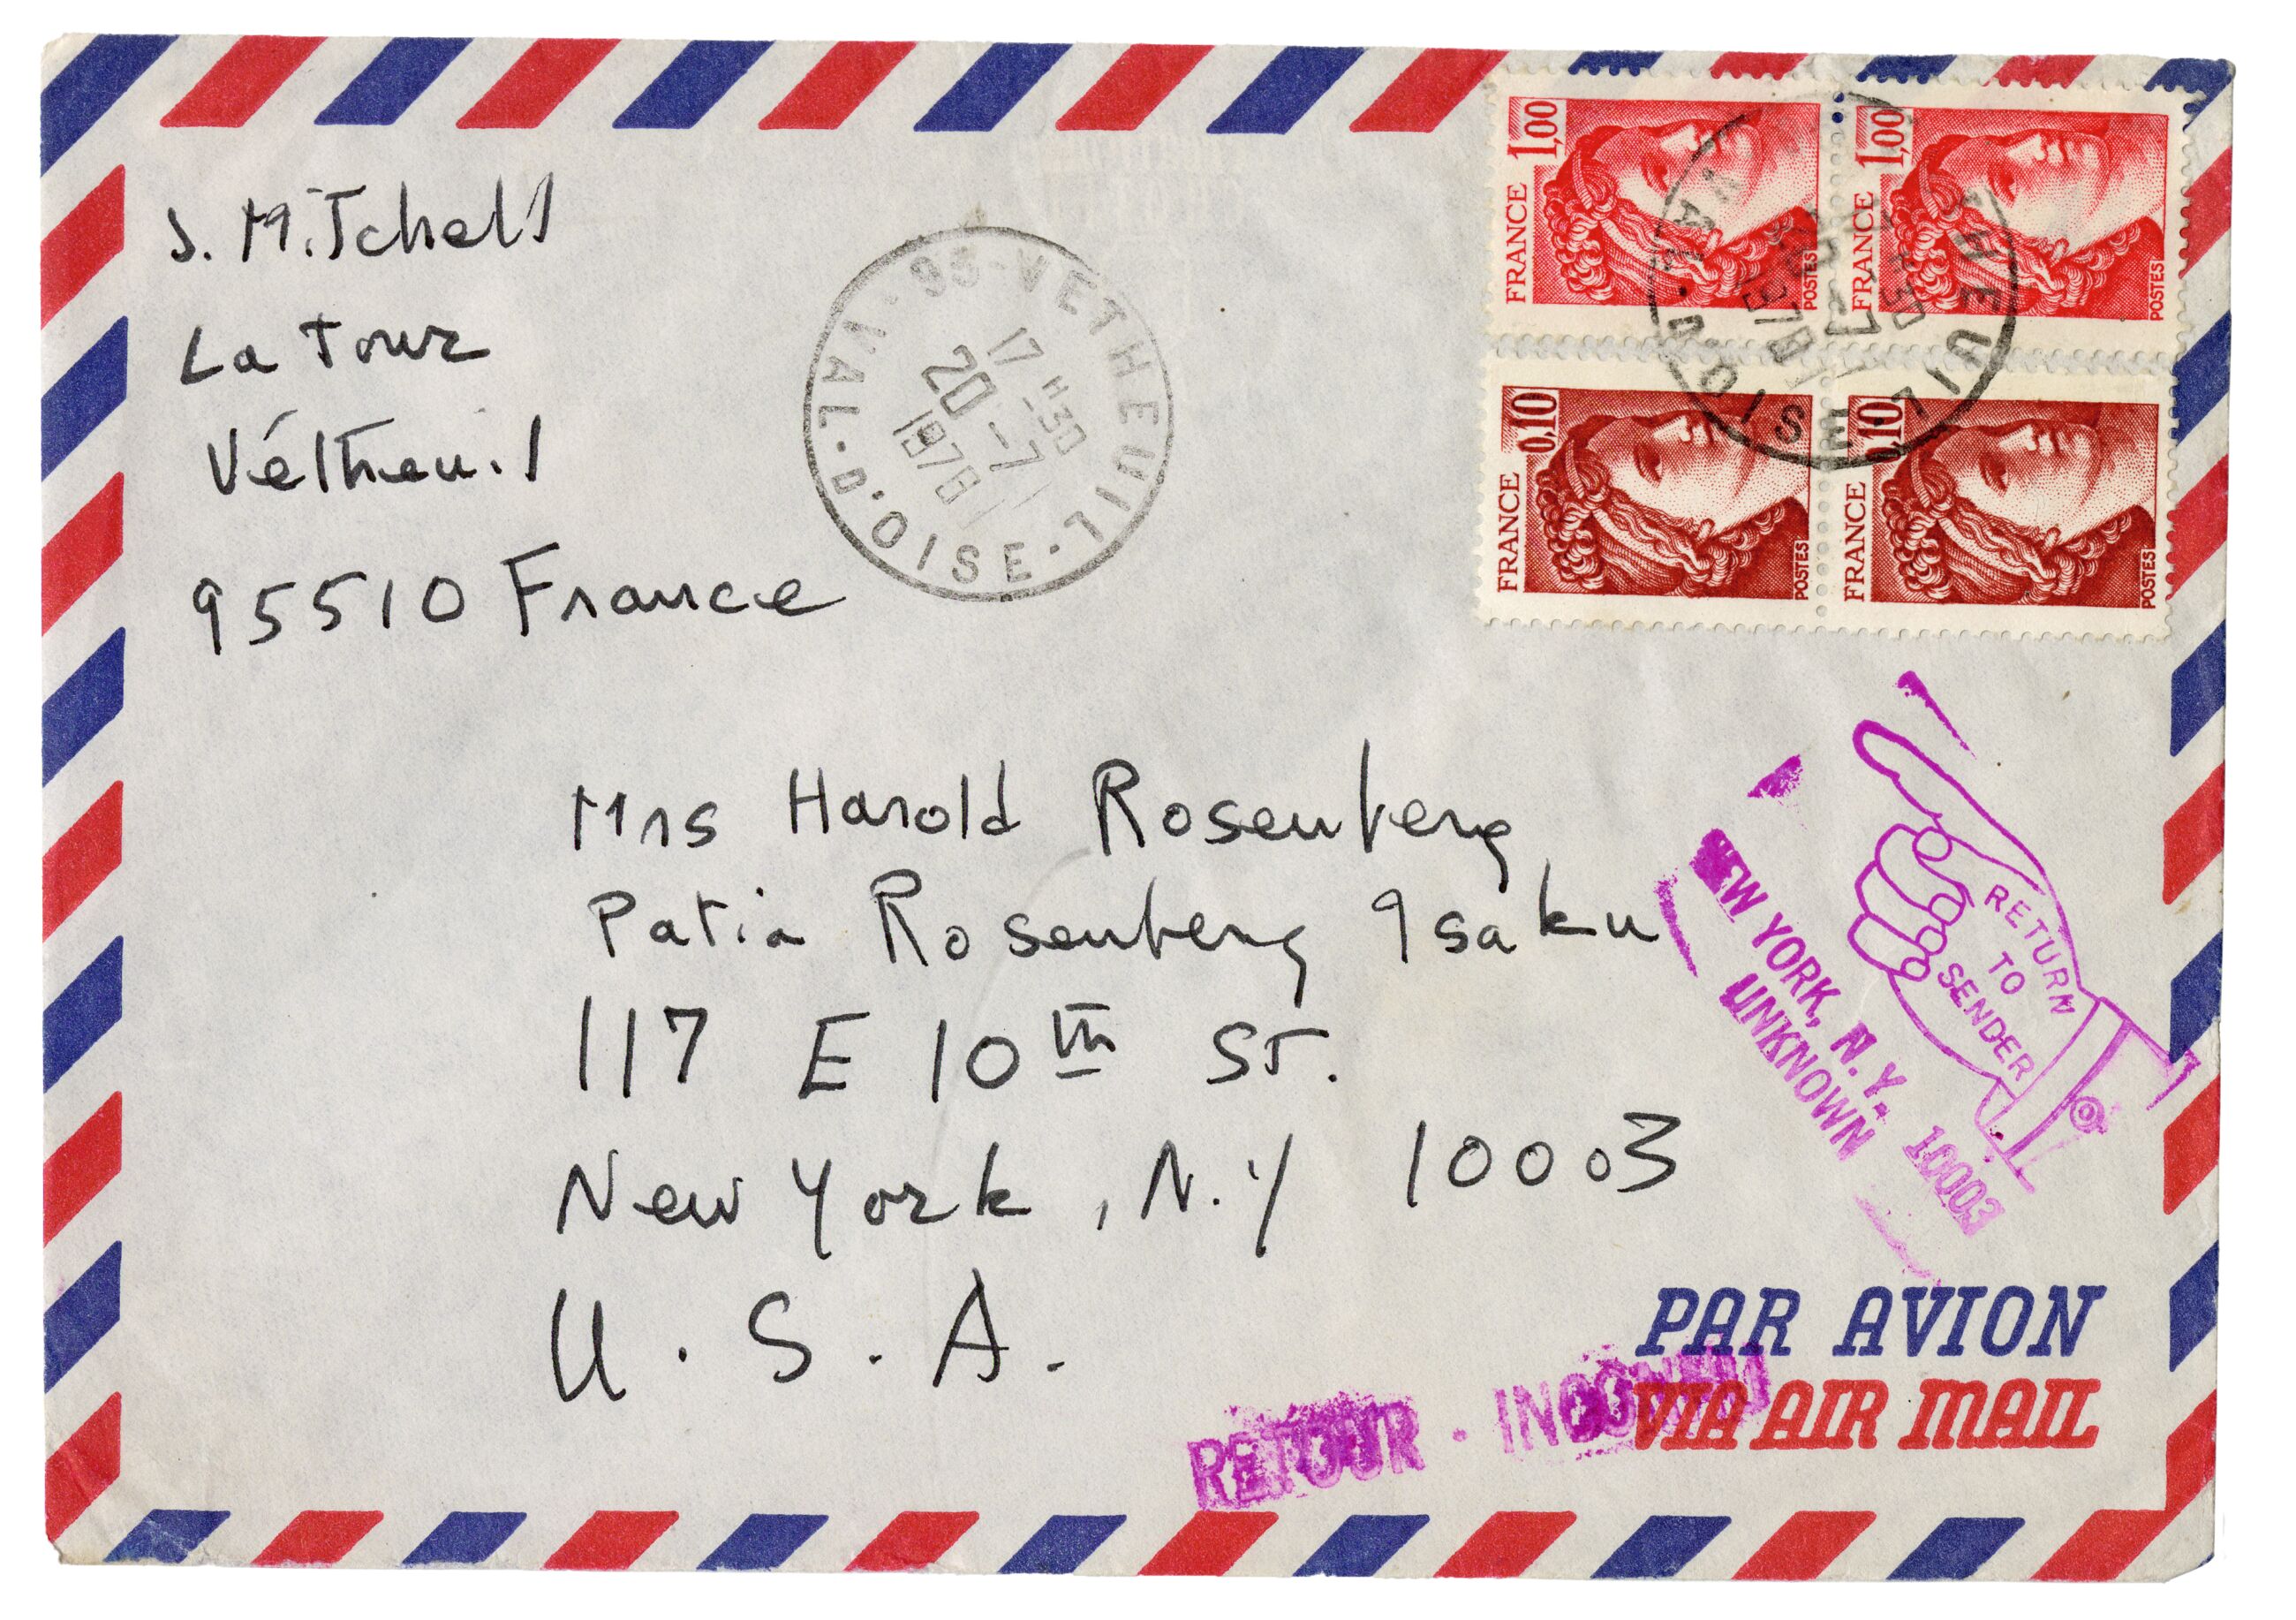 J. Mitchell
La Tour
Vétheuil
95510 France
95-VETHEUIL
VAL-D'OISE
17H30
20-7
1978
1,00
FRANCE
POSTES
1,00
FRANCE
POSTES
0,10
FRANCE
POSTES
0,10
FRANCE
POSTES
Mrs Harold Rosenberg
Patia Rosenberg Isaku
117 E 10th St.
New York, N.Y 10003
U.S.A.
RETURN
TO
SENDER
NEW YORK, N.Y. 10003
UNKNOWN
PAR AVION
VIA AIR MAIL
RETOUR - INCONNU